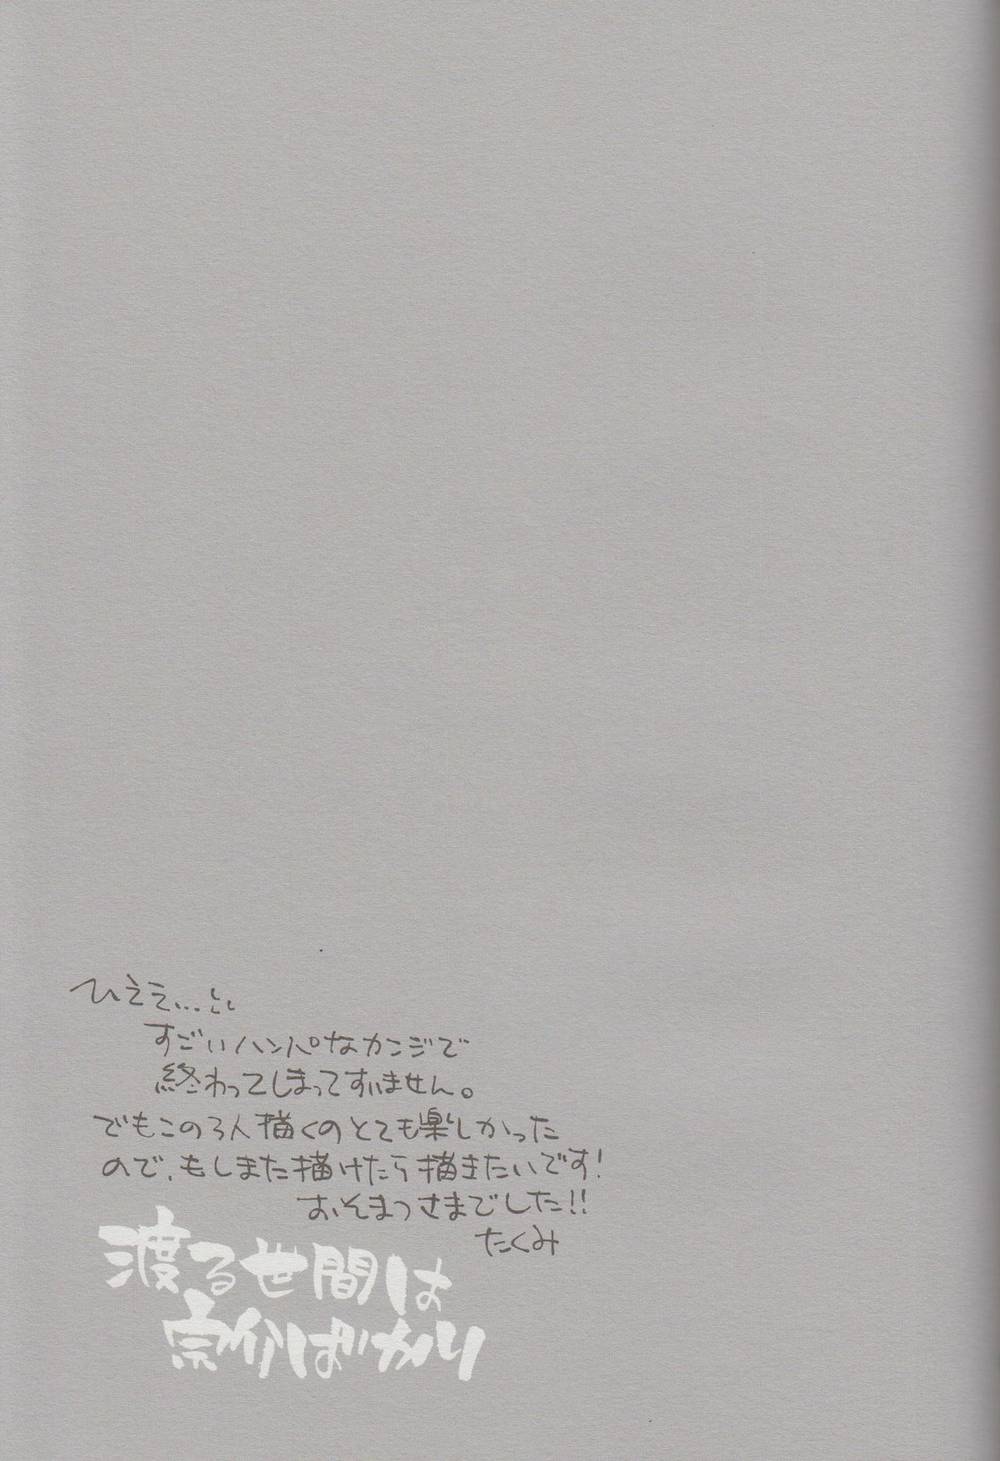 ひええ…
すごいハンパなカンジで
終わってしまってすいません。
でもこの3人描くのとても楽しかった
ので、もしまた描けたら描きたいです!
おそまつさまでした!!
たくみ
渡る世間は
宗介ばかり